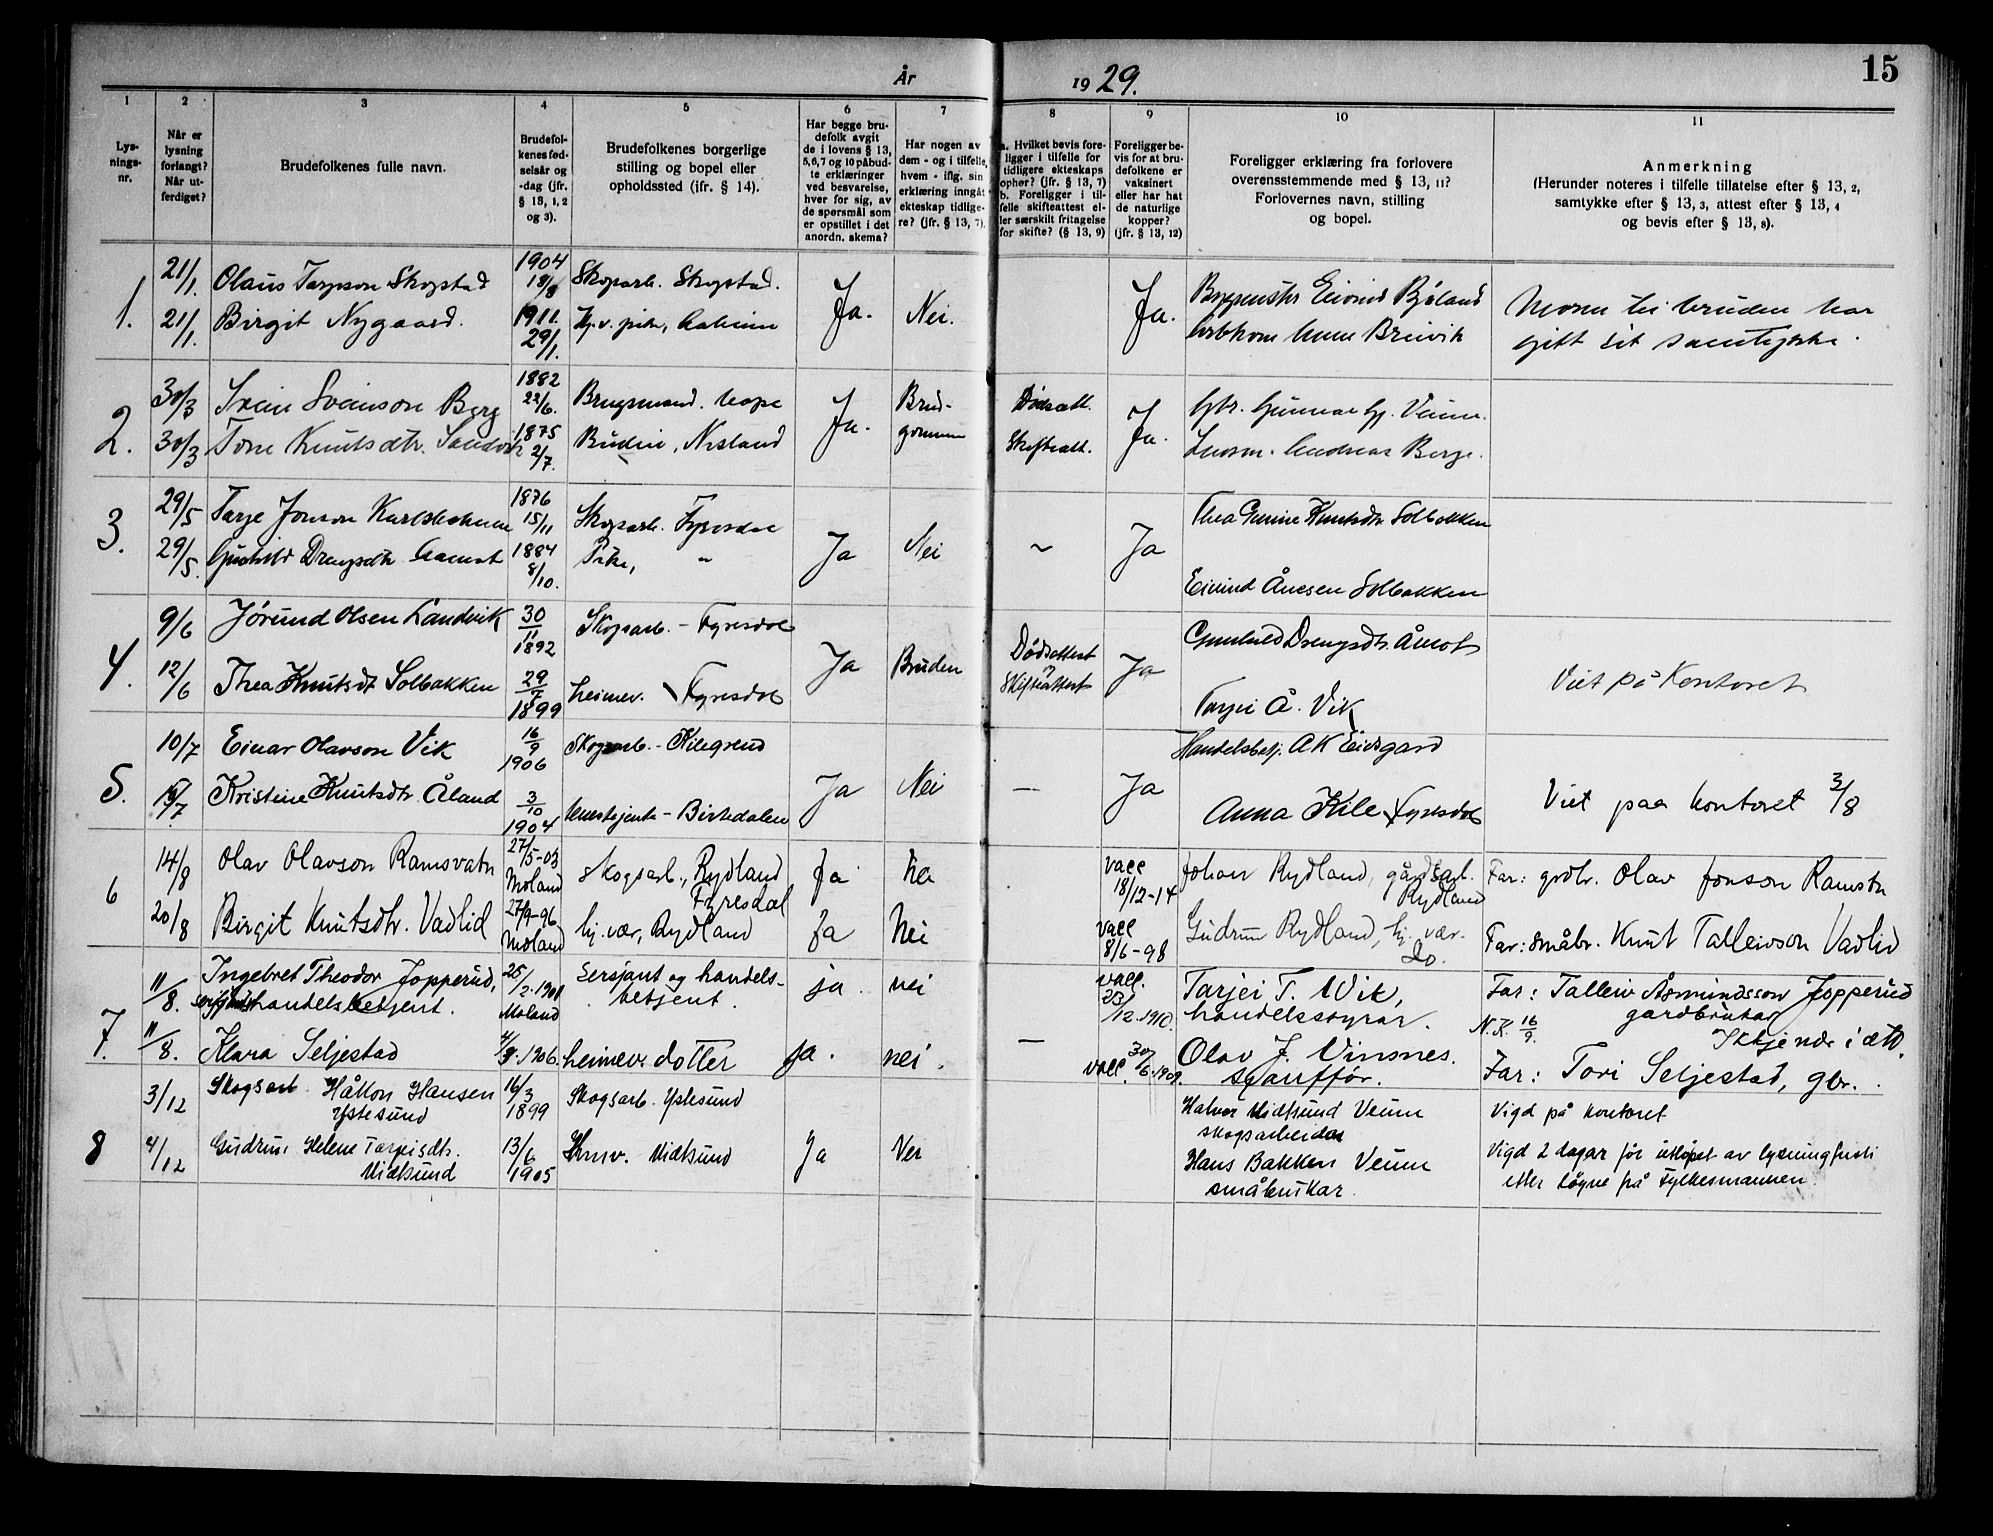 År 1929.
15
1 2 3 4 5 6 7 8 9 10 11
Lys-
nings-
nr.
Når er
lysning
forlangt?
Når ut-
ferdiget?
Brudefolkenes fulle navn.
Brudefol-
kenes fød-
selsår og
-dag (jfr.
§ 13, 1, 2
og 3).
Brudefolkenes borgerlige
stilling og bopel eller
opholdssted (ifr. § 14).
Har begge bru-
defolk avgit
de i lovens § 13,
5, 6, 7 og 10 påbud-
te erklæringer
ved besvarelse,
hver for sig, av
de spørsmål som
er opstillet i det
anordn. skema?
Har nogen av
dem - og i tilfelle,
hvem - iflg. sin
erklæring inngåt
ekteskap tidlige-
re? (jfr. § 13, 7).
a. Hvilket bevis fore-
ligger i tilfelle for
tidligere ekteskaps
ophør? (jfr. § 13, 7)
b. Foreligger i til-
felle skifteattest el-
ler særskilt fritagelse
for skifte? (§ 13, 9)
Foreligger be-
vis for at bru-
defolkene er
vaksinert
eller har hat
de naturlige
kopper?
(jfr. § 13, 12)
Foreligger erklæring fra forlovere
overensstemmende med § 13, 11?
Forlovernes navn, stilling
og bopel.
Anmerkning
(Herunder noteres i tilfelle tillatelse efter § 13, 2,
samtykke efter § 13, 3, attest efter § 13, 4
og bevis efter § 13, 8).
1. 21/1. Olaus Tarjeson Skogstad 1904 18/8 Skogsarb. Skogstad. Ja. Nei. Ja. Eivind Byland Moren til bruden har
21/1. Birgit Nygaard. 1911. 29/1. Breivik gitt sit samtykke.
2. 30/3 Svein Sveinson Berg 1882 22/6. Brugsmand. Ja. Brud- Dødsatt. Ja. Gbr. Gunnar Gj. Veum.
30/3 Tone Knutsdtr. Sandvik 1875 2/7. Budeie, Nesland gommen Skifteatt. Lensm. Andreas Berge.
3. 29/5 Tarje Jonson Karlsholmen 1876 15/11 Skogsarb. Fyresdal Thea Gurine Knutsdtr Solbakken
29/5. Gunhild Drengsdtr. Aamot 1884 8/10. Pike, " Ja Nei ~ Ja
Eivind Ånesen Solbakken
4. 9/6 Jørund Olsen Landvik 30/11 1892 Skogsarb. - Fyresdal Ja Bruden Dødsattest Ja Gunhild Drengsdtr. Åmot
12/6 Thea Knutsdt Solbakken 29/7 1899 heimev. Fyresdal Skifteattest Tarjei Å. Vik Viet på Kontoret
5. 10/7 Einar Olavson Vik 16/9 1906 Skogsarb. - Kilegrend Ja Nei — Ja Handelsbetj. A K Eidsgard
15/7 Kristine Knutsdtr. Åland 3/10 1904 tenestejente - Birtedalen Anna Kile Fyresdal Viet paa kontoret 3/8
6 14/8 Olav Olavson Ramsvatn 27/5-03 Moland skogsarb., Rydland Fyresdal ja nei vacc 18/12-14 Johan Rydland, gårdsarb. Rydland Far: grdbr. Olav Jonson Ramsvtn
20/8 Birgit Knutsdtr. Vadlid 27/9-96 Moland hj. vær, Rydland ja nei vacc 8/6-98 Gudrun Rydland, hj. vær. do. Far: småbr. Knut Talleivson Vadlid
7. 11/8. Ingebret Theodor Jopperud, 25/2.1901 Moland Sersjant og handels- ja nei vacc. 23/12.1910. Tarjei T. Wik, Far: Talleiv Åsmundsson Jopperud
sersjant handelsbetjent. betjent. handelsstyrar. N.K. 16/9. gardbrukar
11/8. Klara Seljestad 4/9.1906. heimev. dotter ja. nei. — vacc. 30/6.1909. Olav J. Vinsnes. sjauffør. Ikkje nær i ætt. Far: Tori Seljestad, gbr.
8 3/12 Skogsarb. Håkon Hansen 16/3 1899 Skogsarb. Ystesund Halvor Midtsund Veum Vigd på kontoret
Ystesund skogsarbeidar
4/12 Gudrun Helene Tarjeisdtr. 13/6 1905 Hmv. Midtsund Ja Nei Hans Bakken Veum Vigd 2 dagar før utløpet av lysningsfrist
Midtsund småbrukar. etter løyve frå Fylkesmannen.